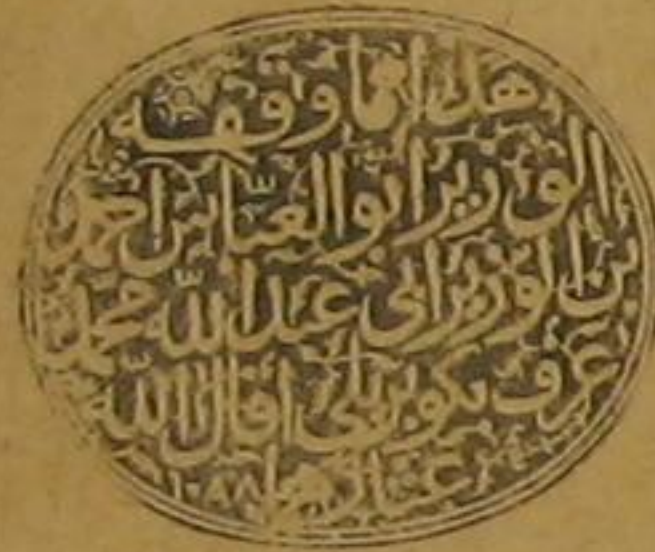 هذا مما وقفه
الوزير أبو العباس احمد
بن الوزير ابي عبد الله محمد
عرف بكوبريلي أقال الله
عثارهما ١٠٨٨